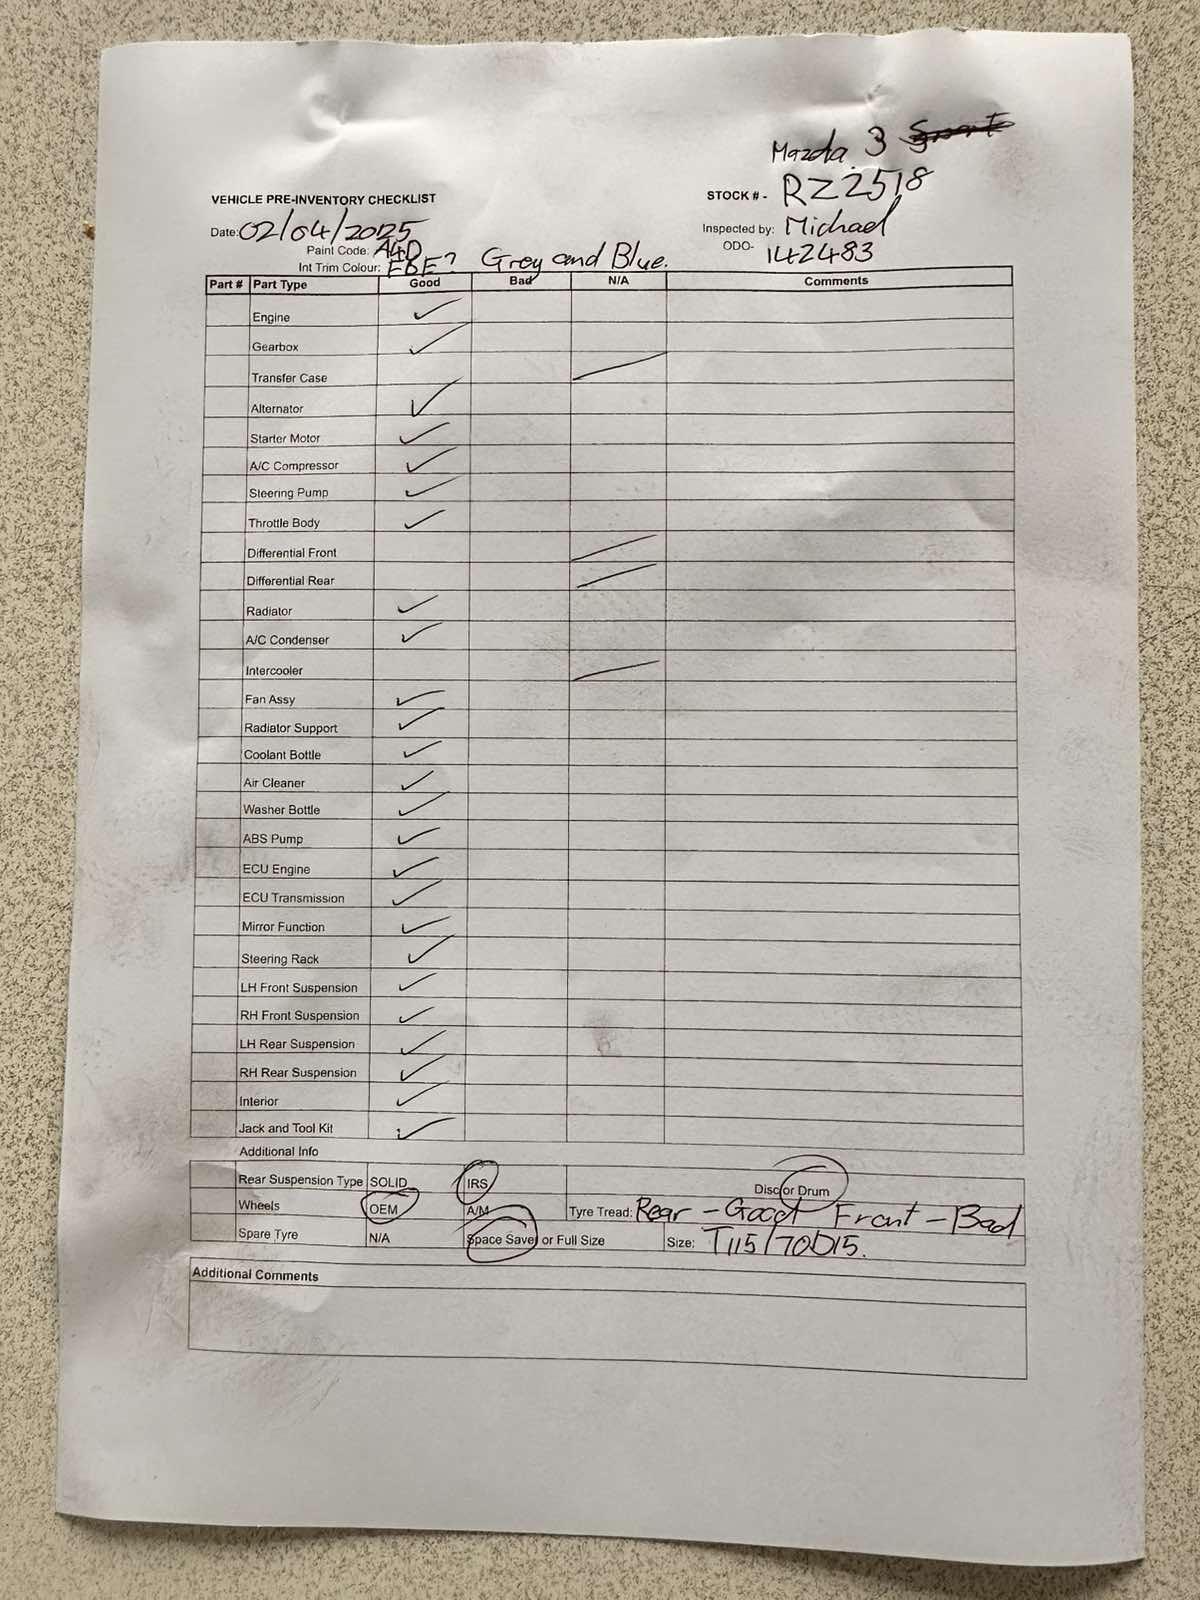 Mazda 3
VEHICLE PRE-INVENTORY CHECKLIST STOCK # - RZ2518
Date: 02/04/2025 Inspected by: Michael
Paint Code: A4D ODO- 142483
Int Trim Colour: EBE? Grey and Blue.
Part # Part Type Good Bad N/A Comments
Engine ✓
Gearbox ✓
Transfer Case
Alternator ✓
Starter Motor ✓
A/C Compressor ✓
Steering Pump ✓
Throttle Body ✓
Differential Front
Differential Rear
Radiator ✓
A/C Condenser ✓
Intercooler
Fan Assy ✓
Radiator Support ✓
Coolant Bottle ✓
Air Cleaner ✓
Washer Bottle ✓
ABS Pump ✓
ECU Engine ✓
ECU Transmission ✓
Mirror Function ✓
Steering Rack ✓
LH Front Suspension ✓
RH Front Suspension ✓
LH Rear Suspension ✓
RH Rear Suspension ✓
Interior ✓
Jack and Tool Kit ✓
Additional Info
Rear Suspension Type SOLID IRS Disc or Drum
Wheels OEM A/M Tyre Tread: Rear - Good Front - Bad
Spare Tyre N/A Space Saver or Full Size Size: T115/70D15.
Additional Comments